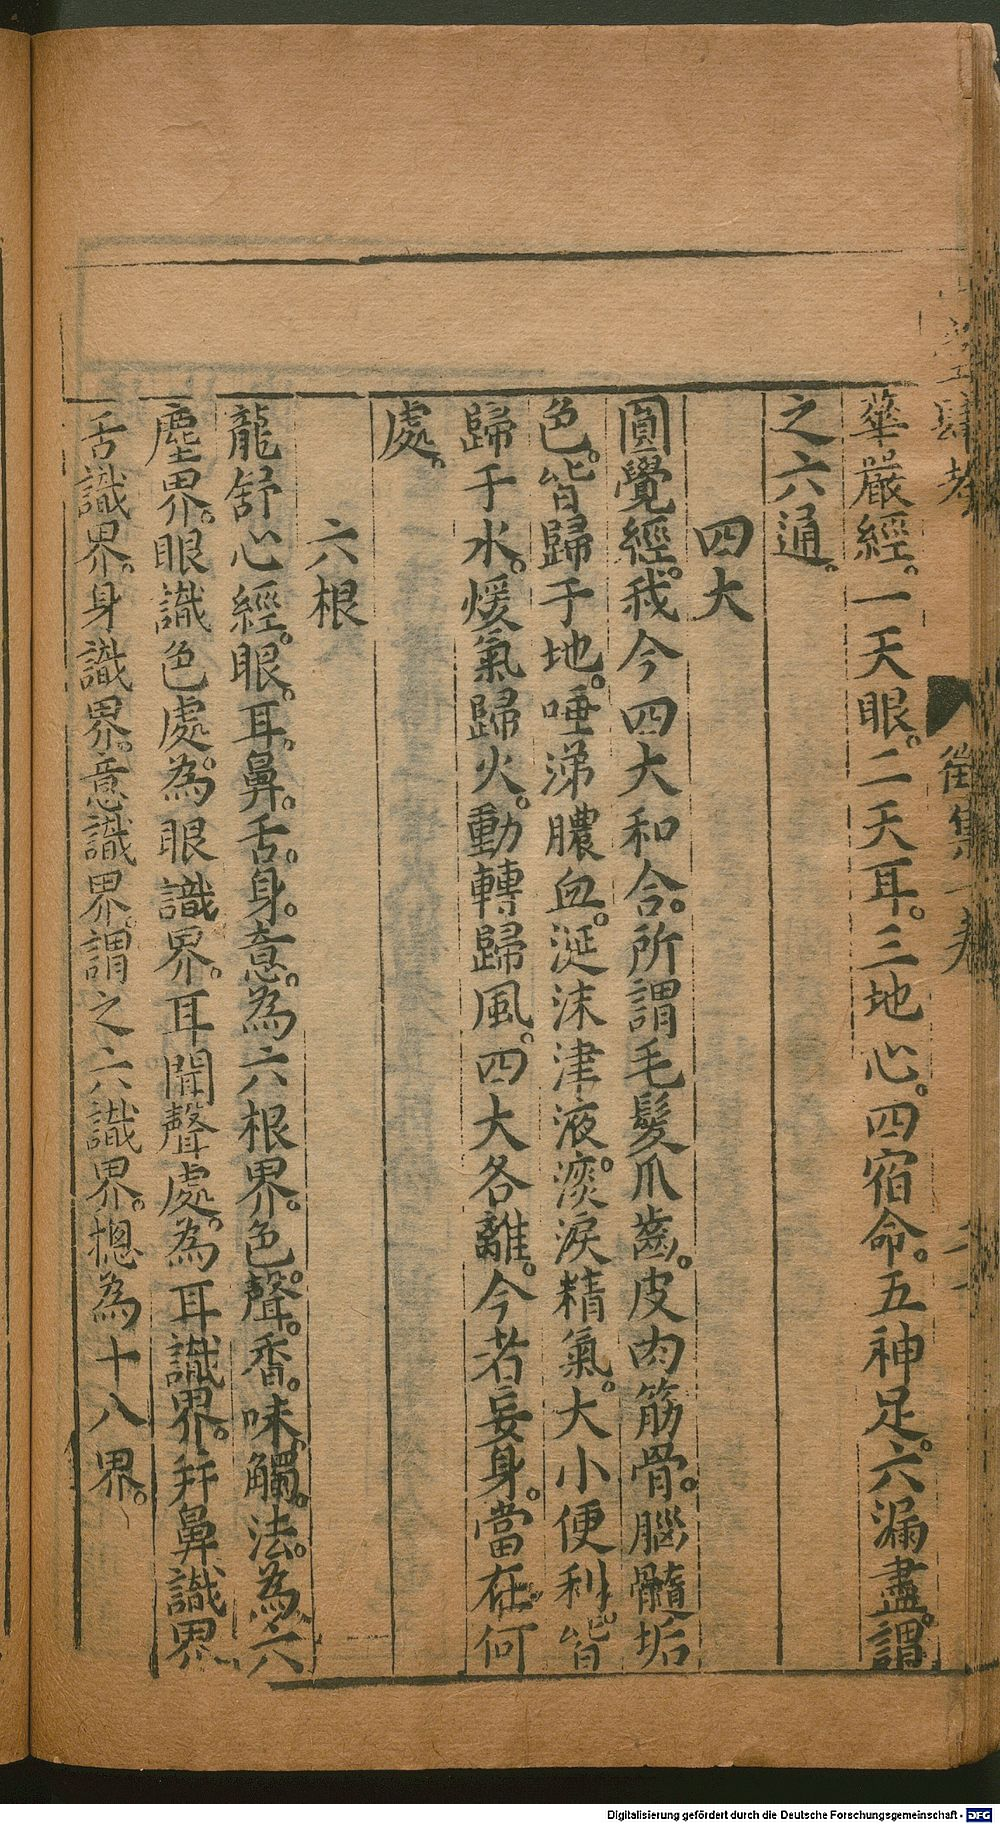 華嚴經。一天眼。二天耳。三地心。四宿命。五神足。六漏盡。謂
之六通。
四大
圓覺經。我今四大和合。所謂毛髮爪齒。皮肉筋骨。腦髓垢
色。皆歸于地。唾涕膿血。涎沫津液。淡淚精氣。大小便利。皆
歸于水。煖氣歸火。動轉歸風。四大各離。今者妄身。當在何
處。
六根
龍舒心經。眼。耳。鼻。舌。身。意。為六根界。色。聲。香。味。觸。法。為六
塵界。眼識色處。為眼識界。耳聞聲處。為耳識界。并鼻識界
舌識界。身識界。意識界。謂之六識界。總為十八界。
Digitalisierung gefördert durch die Deutsche Forschungsgemeinschaft - DFG